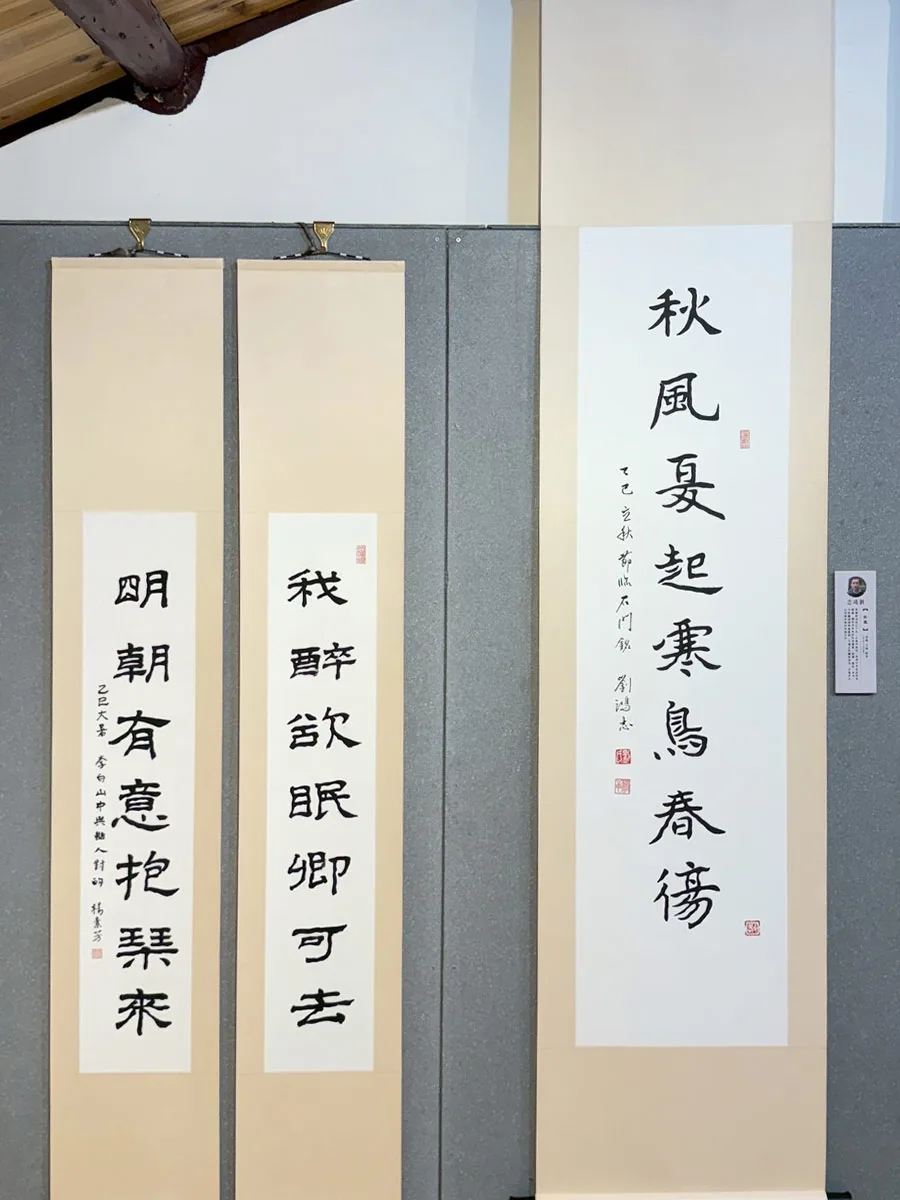 秋風夏起寒鳥春傷
乙巳立秋節臨石門銘 劉鴻志
我醉欲眠卿可去
明朝有意抱琴來
乙巳大暑 李白山中與幽人對酌 楊素芳